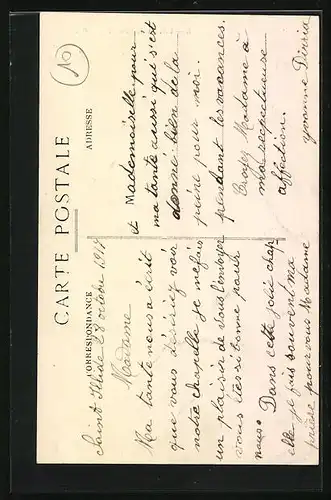 10
CARTE POSTALE
CORRESPONDANCE
ADRESSE
Saint Illide 28 octobre 1917
Madame
Ma tante nous a écrit
que vous désiriez voir
notre chapelle je me fais
un plaisir de vous l'envoyer
vous êtes si bonne pour
nous. Dans cette jolie chap
elle je fais souvent ma
prière pour vous Madame
et Mademoiselle pour
ma tante aussi qui s'est
donné bien de la
peine pour moi.
pendant les vacances.
Croyez Madame à
ma respectueuse
affection.
Yvonne